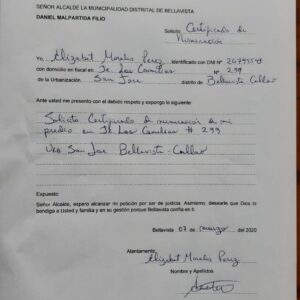 SEÑOR ALCALDE LA MUNICIPALIDAD DISTRITAL DE BELLAVISTA
DANIEL MALPARTIDA FILIO
Solicito: Certificado de
Numeración
Yo, Elizabet Morales Perez, identificado con DNI Nº
con domicilio en fiscal en Jr. Las Camelias Nº 299
de la Urbanización San Jose distrito de Bellavista-Callao
Ante usted me presento con el debido respeto y expongo lo siguiente:
Solicito Certificado de numeración de mi
predio en Jr Las Camelias # 299
Urb San Jose Bellavista-Callao
Expuesto
Señor Alcalde, espero alcanzar mi petición por ser de justicia. Asimismo, desearle que Dios lo
bendiga a Usted y familia y en su gestión porque Bellavista confía en ti.
Bellavista 07 de marzo del 2020
Atentamente:
Elizabet Morales Perez
Nombre y Apellidos